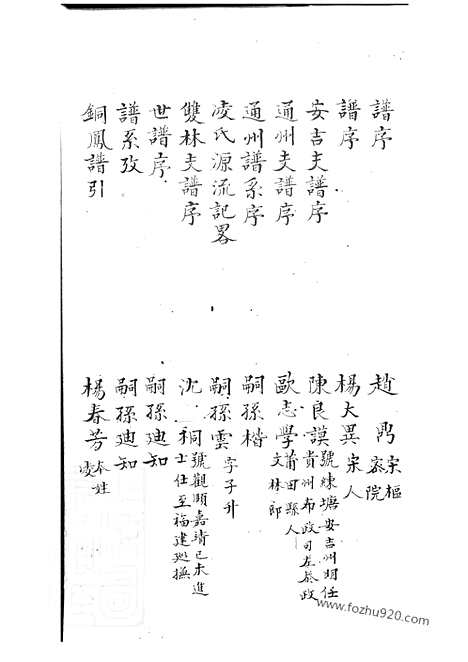 譜序 趙鼎 宋樞密院
譜序 楊大異 宋人
安吉支譜序 陳良謨 號棟塘安吉州明任貴州布政司左叅政
通州支譜序 歐志學 莆田縣人文林郎
通州譜系序 嗣孫楷
凌氏源流記畧 嗣孫雲 字子升
雙林支譜序 沈桐 號觀頤嘉靖己未進士任至福建廵撫
世譜序 嗣孫迪知
譜系攷 嗣孫迪知
銅鳳譜引 楊春芳 本姓凌
www.fozhu920.com